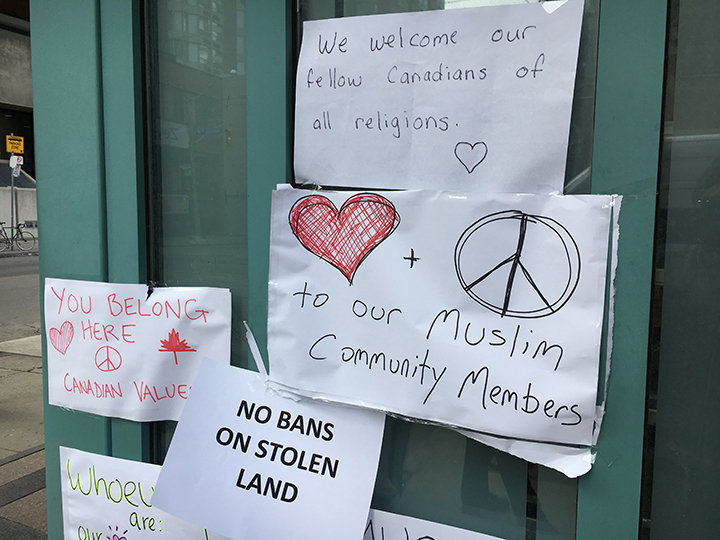 We welcome our
fellow Canadians of
all religions.
+
to our Muslim
Community Members
YOU BELONG
HERE
CANADIAN VALUES
NO BANS
ON STOLEN
LAND
are:
our